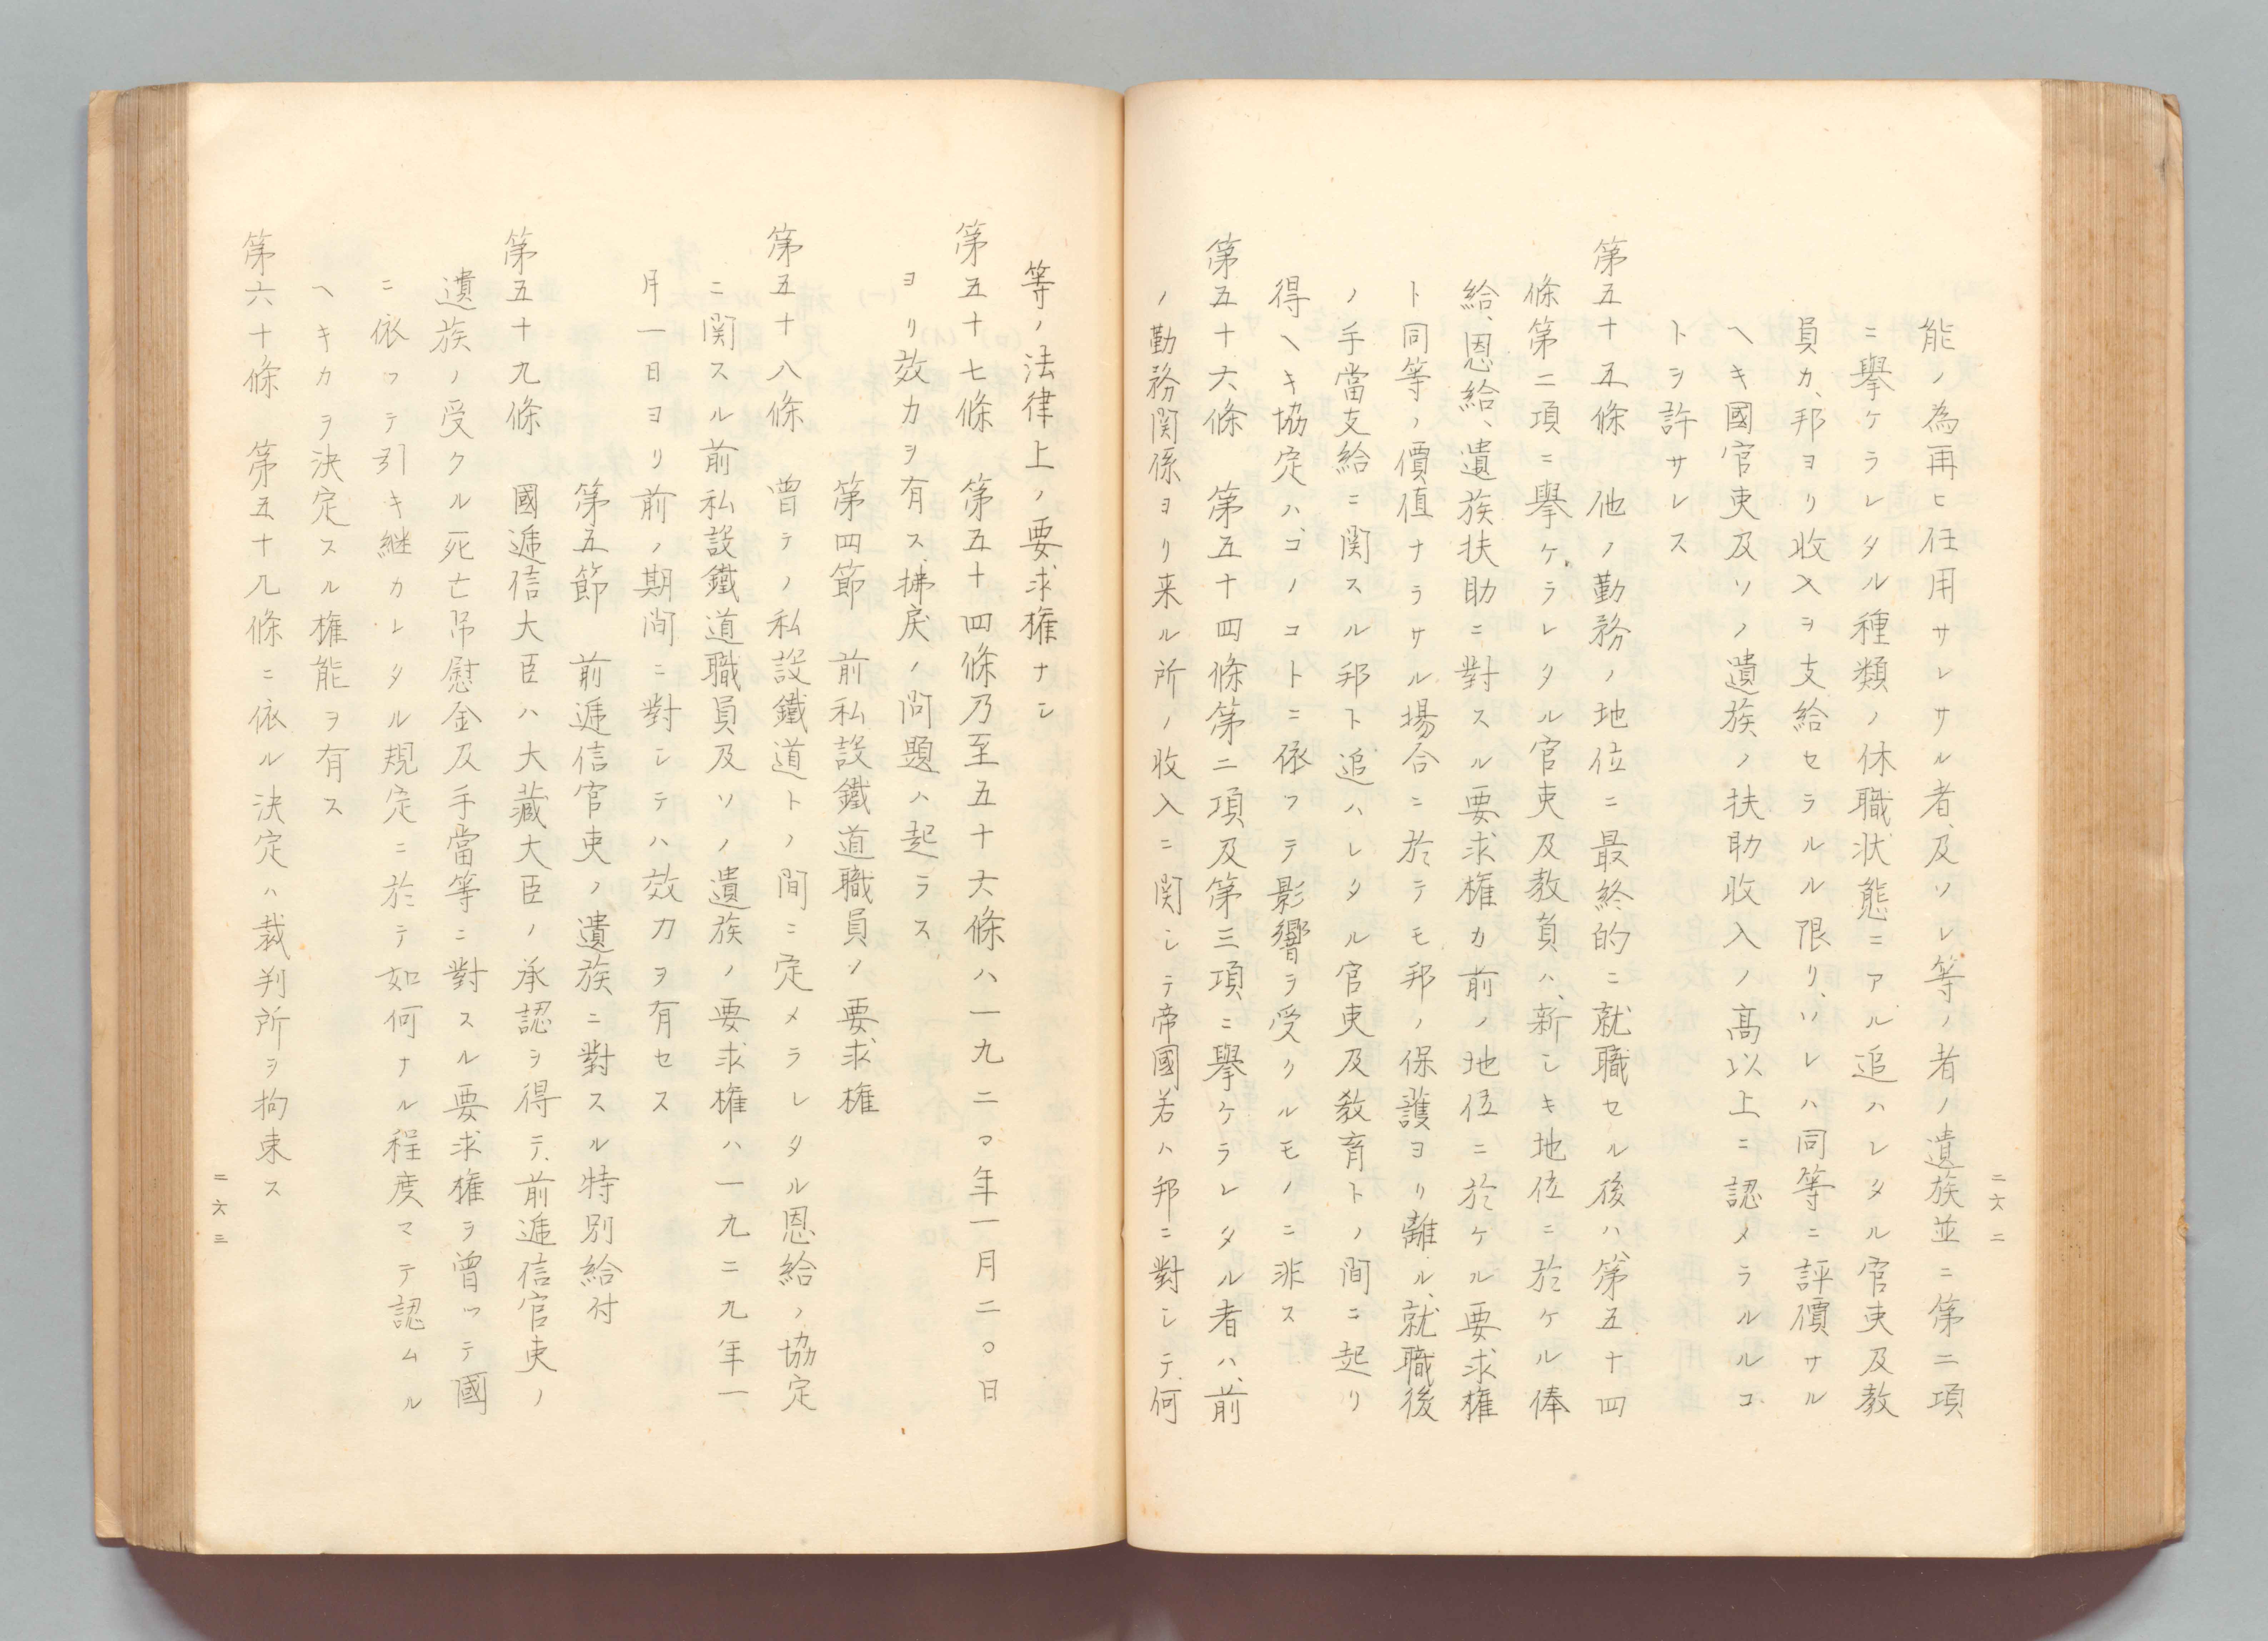 能ノ為再ヒ任用サレサル者、及ソレ等ノ者ノ遺族並ニ第二項
ニ擧ケラレタル種類ノ休職状態ニアル追ハレタル官吏及教
員カ、邦ヨリ收入ヲ支給セラルル限リ、ソレハ同等ニ評價サル
ヘキ國官吏及ソノ遺族ノ扶助收入ノ髙以上ニ認メラルルコ
トヲ許サレス
第五十五條 他ノ勤務ノ地位ニ最終的ニ就職セル後ハ、第五十四
條第二項ニ擧ケラレタル官吏及教員ハ、新シキ地位ニ於ケル俸
給、恩給、遺族扶助ニ對スル要求權カ前ノ地位ニ於ケル要求權
ト同等ノ價值ナラサル場合ニ於テモ邦ノ保護ヨリ離ル、就職後
ノ手當支給ニ関スル邦ト追ハレタル官吏及敎育トノ間ニ起リ
得ヘキ協定ハ、コノコトニ依ツテ影響ヲ受クルモノニ非ス
第五十六條 第五十四條第二項及第三項ニ擧ケラレタル者ハ、前
ノ勤務関係ヨリ来ル所ノ收入ニ関シテ帝國若ハ邦ニ對シテ何
二六二
等ノ法律上ノ要求權ナシ
第五十七條 第五十四條乃至五十六條ハ一九二〇年一月二〇日
ヨリ效力ヲ有ス、拂戻ノ問題ハ起ラス
第四節 前私設鐵道職員ノ要求權
第五十八條 曾テノ私設鐵道トノ間ニ定メラレタル恩給ノ協定
ニ関スル前私設鐵道職員及ソノ遺族ノ要求權ハ一九二九年一
月一日ヨリ前ノ期間ニ對シテハ效力ヲ有セス
第五節 前遞信官吏ノ遺族ニ對スル特別給付
第五十九條 國遞信大臣ハ大藏大臣ノ承認ヲ得テ、前遞信官吏ノ
遺族ノ受クル死亡吊慰金及手當等ニ對スル要求權ヲ曾ツテ國
ニ依ツテ引キ継カレタル規定ニ於テ如何ナル程度マテ認ムル
ヘキカヲ決定スル權能ヲ有ス
第六十條 第五十九條ニ依ル決定ハ裁判所ヲ拘束ス
二六三